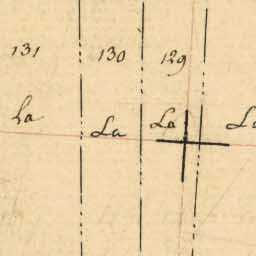 131 130 129
La La La La